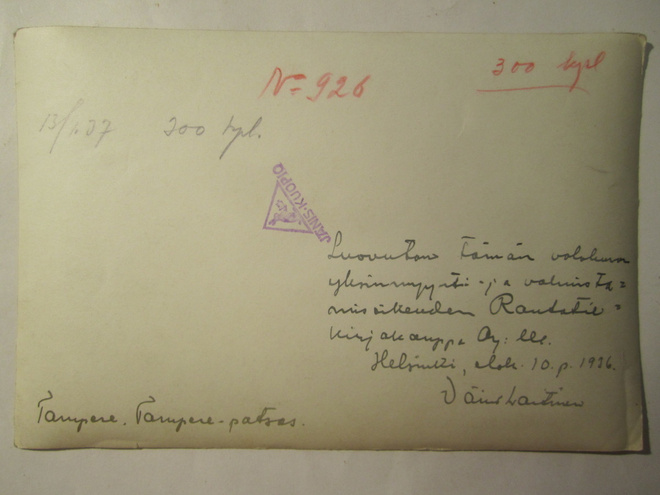 No 926
300 kpl
13/1.37 300 kpl.
JÄNIS-KUOPIO
Luovutan tämän valokuvan
yksinmyynti- ja valmista=
misoikeuden Rautatie=
kirjakauppa Oy: lle.
Helsinki, elok. 10. p. 1926.
Väinö
Tampere. Tampere-patsas.